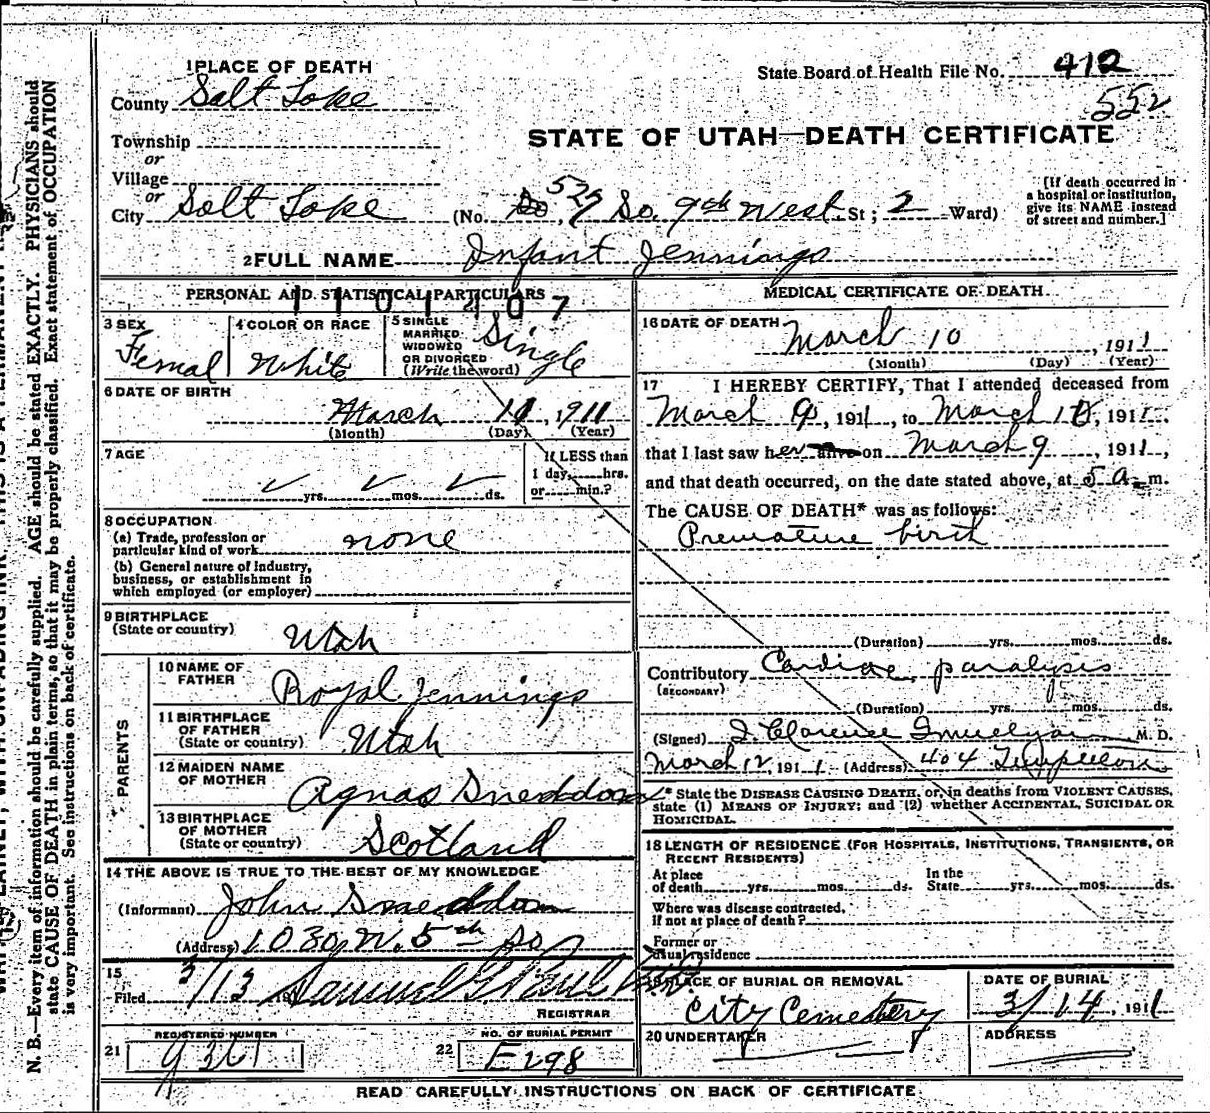 N. B.—Every item of information should be carefully supplied. AGE should be stated EXACTLY. PHYSICIANS should
state CAUSE OF DEATH in plain terms, so that it may be properly classified. Exact statement of OCCUPATION
is very important. See instructions on back of certificate.
1 PLACE OF DEATH
State Board of Health File No. 412
552
County Salt Lake
STATE OF UTAH—DEATH CERTIFICATE
Township
or
Village
or
City Salt Lake (No. 529 So. 9th West St; 2 Ward)
[If death occurred in
a hospital or institution,
give its NAME instead
of street and number.]
2 FULL NAME Infant Jennings
PERSONAL AND STATISTICAL PARTICULARS
3 SEX
Femal
4 COLOR OR RACE
White
5 SINGLE
MARRIED
WIDOWED
OR DIVORCED
(Write the word)
Single
6 DATE OF BIRTH
March 10, 1911
(Month) (Day) (Year)
7 AGE
yrs. mos. ds.
If LESS than
1 day, hrs.
or min.?
8 OCCUPATION
(a) Trade, profession or
particular kind of work none
(b) General nature of industry,
business, or establishment in
which employed (or employer)
9 BIRTHPLACE
(State or country) Utah
PARENTS
10 NAME OF
FATHER Royal Jennings
11 BIRTHPLACE
OF FATHER
(State or country) Utah
12 MAIDEN NAME
OF MOTHER Agnas Sneddon
13 BIRTHPLACE
OF MOTHER
(State or country) Scotland
14 THE ABOVE IS TRUE TO THE BEST OF MY KNOWLEDGE
(Informant) John Sneddon
(Address) 1030 W. 5th So
15
Filed 3/13 Samuel G Paul
REGISTRAR
REGISTERED NUMBER
21
NO. OF BURIAL PERMIT
22 E298
MEDICAL CERTIFICATE OF DEATH
16 DATE OF DEATH
March 10, 1911
(Month) (Day) (Year)
17 I HEREBY CERTIFY, That I attended deceased from
March 9, 1911, to March 10, 1911,
that I last saw her alive on March 9, 1911,
and that death occurred, on the date stated above, at 5 a m.
The CAUSE OF DEATH* was as follows:
Premature birth
(Duration) yrs. mos. ds.
Contributory Cardiac paralysis
(SECONDARY)
(Duration) yrs. mos. ds.
(Signed) Clarence M. D.
March 12, 1911 (Address) 404 Templeton
* State the DISEASE CAUSING DEATH, or, in deaths from VIOLENT CAUSES,
state (1) MEANS OF INJURY; and (2) whether ACCIDENTAL, SUICIDAL OR
HOMICIDAL.
18 LENGTH OF RESIDENCE (FOR HOSPITALS, INSTITUTIONS, TRANSIENTS, OR
RECENT RESIDENTS)
At place
of death yrs. mos. ds.
In the
State yrs. mos. ds.
Where was disease contracted,
if not at place of death?
Former or
usual residence
19 PLACE OF BURIAL OR REMOVAL
City Cemetery
DATE OF BURIAL
3/14, 1911
20 UNDERTAKER
ADDRESS
READ CAREFULLY INSTRUCTIONS ON BACK OF CERTIFICATE